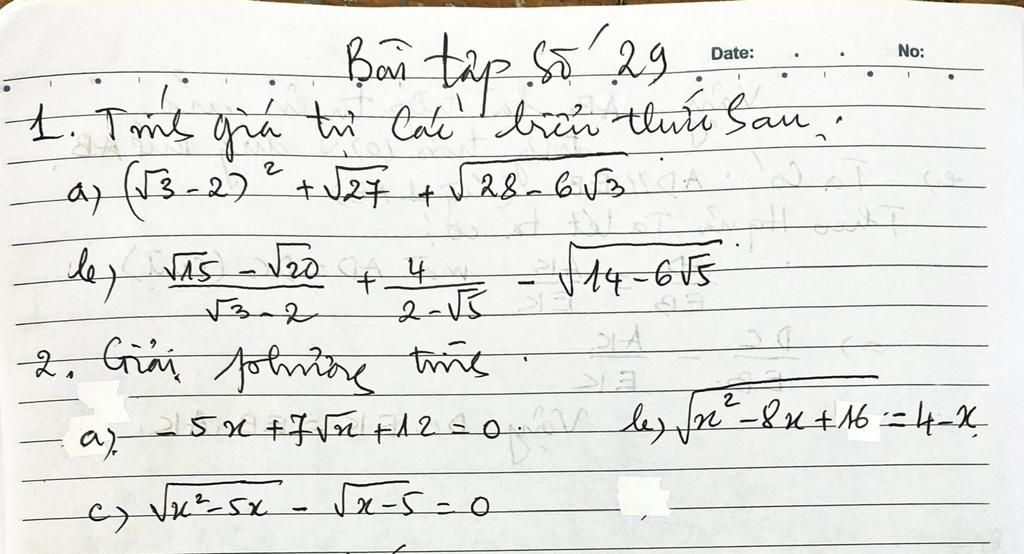 Bài tập số 29 Date: No:
1. Tính giá trị các biểu thức sau:
a) (√3 - 2)² + √27 + √(28 - 6√3)
b) (√15 - √20)/(√3 - 2) + 4/(2 - √5) - √(14 - 6√5)
2. Giải phương trình
a) - 5x + 7√x + 12 = 0 b) √(x² - 8x + 16) = 4 - x
c) √(x² - 5x) - √(x - 5) = 0